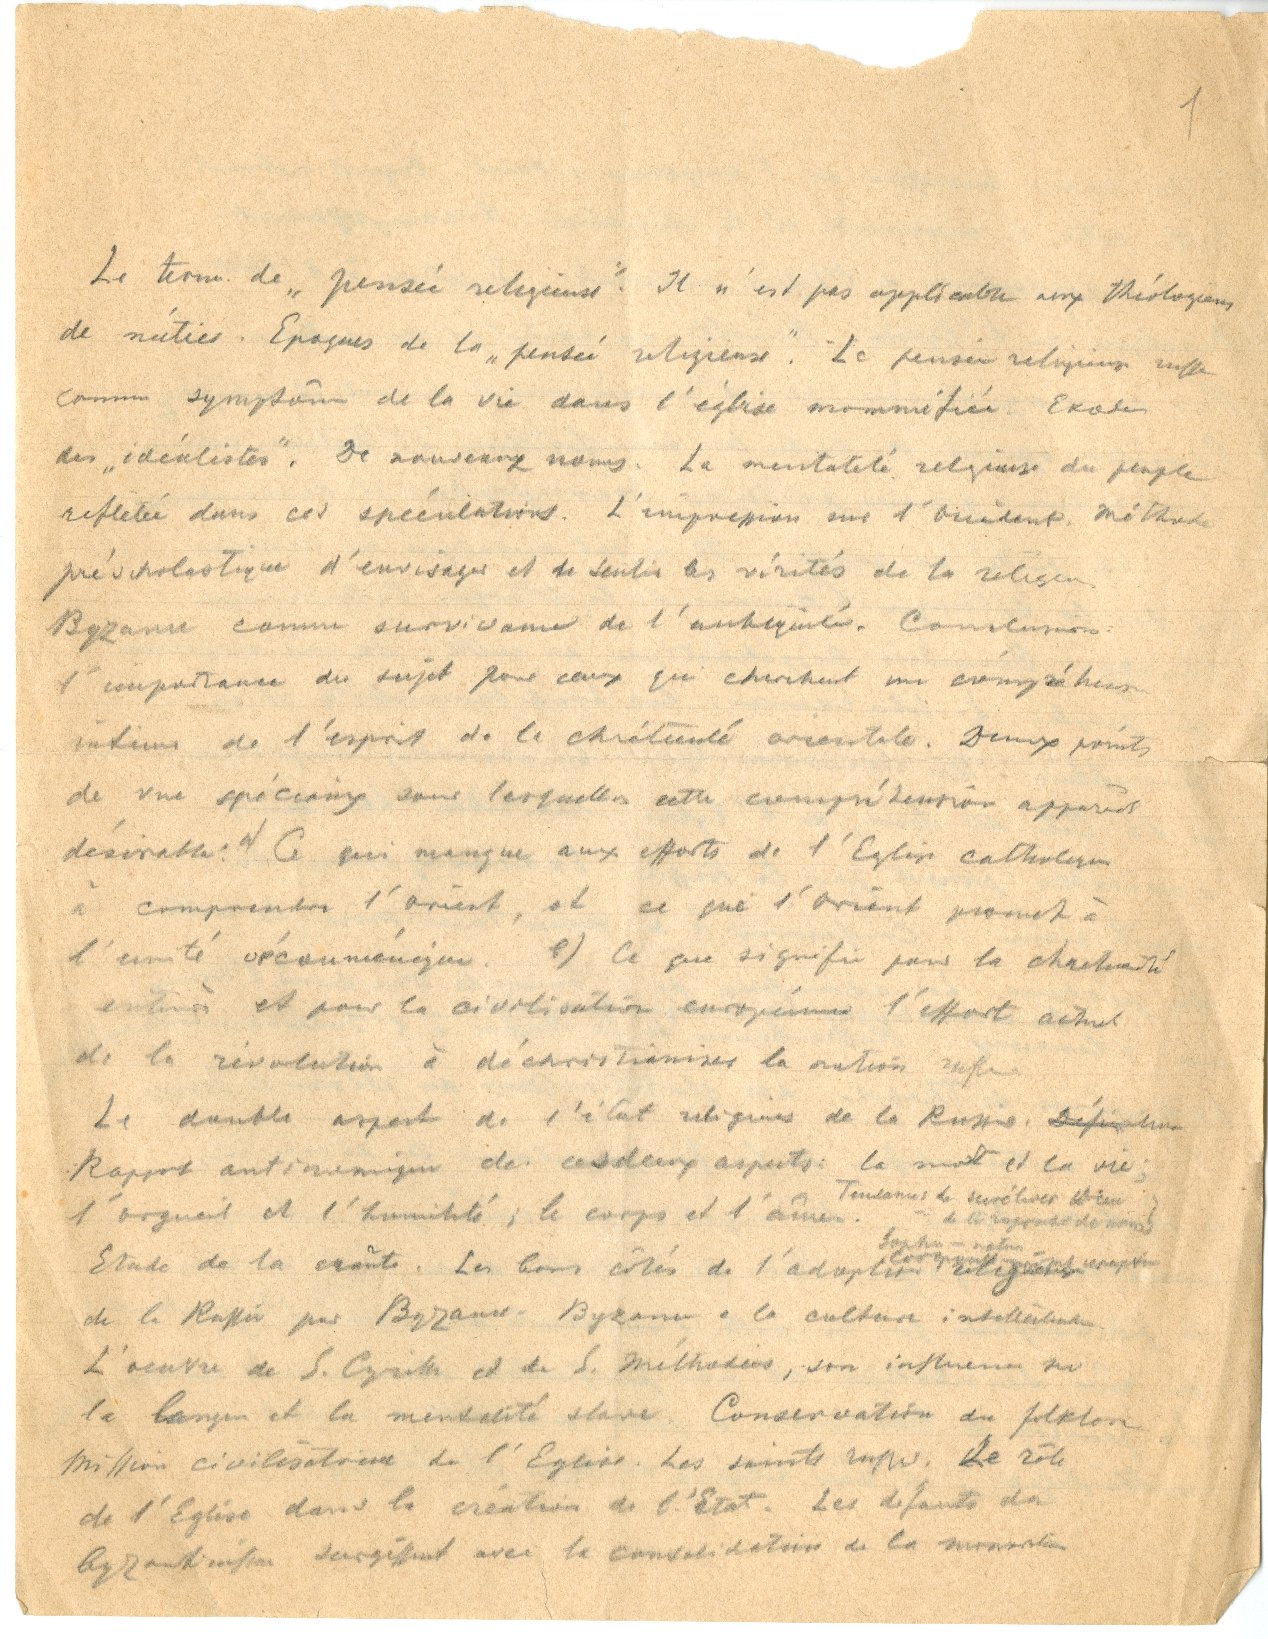 1
Le terme de „pensée religieuse“. Il n'est pas applicable aux théologiens
de métier. Epoques de la „pensée religieuse“. La pensée religieuse russe
comme symptôme de la vie dans l'église mommifiée. Exode
des „idéalistes“. De nouveaux noms. La mentalité religieuse du peuple
reflétée dans ces spéculations. L'impression sur l'Occident. Méthode
préscholastique d'envisager et de sentir les vérités de la religion
Byzance comme survivance de l'antiquité. Conclusion:
l'importance du sujet pour ceux qui cherchent une compréhension
intime de l'esprit de la chrétienté orientale. Deux points
de vue spéciaux sous lesquelles cette compréhension apparaît
désirable: a) Ce qui manque aux efforts de l'Eglise catholique
à comprendre l'Orient, et ce que l'Orient promet à
l'unité oecouménique. b) Ce que signifie pour la chretienté
entière et pour la civilisation européenne l'effort actuel
de la révolution à déchristianiser la nation russe
Le double aspect de l'état religieux de la Russie.
Rapport antinomique de ces deux aspects: la mort et la vie;
l'orgueil et l'humilité; le corps et l'âme. Tendances de
Etude de la croûte. Les bons côtés de l'adoption religieuse
de la Russie par Byzance. Byzance e la culture intellectuelle
L'oeuvre de S. Cyrille et de S. Méthodius, son influence sur
la langue et la mentalité slave. Conservation du folklore
Mission civilisatrice de l'Eglise. Les saints russes. Le rôle
de l'Eglise dans la création de l'Etat. Les défauts du
byzantinisme surgissent avec la consolidation de la monarchie